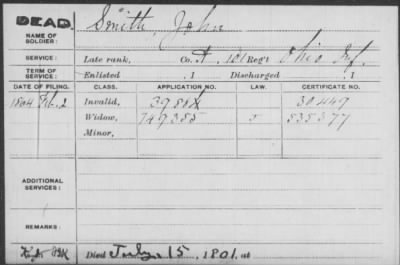 DEAD.
NAME OF SOLDIER: Smith, John
SERVICE: Late rank, Co. A, 101 Reg't Ohio Inf.
TERM OF SERVICE: Enlisted , 1 Discharged , 1
DATE OF FILING. CLASS. APPLICATION NO. LAW. CERTIFICATE NO.
1864 Feb. 2 Invalid, 30447
Widow, 749385 535377
Minor,
ADDITIONAL SERVICES:
REMARKS:
Died July 15, 1801, at